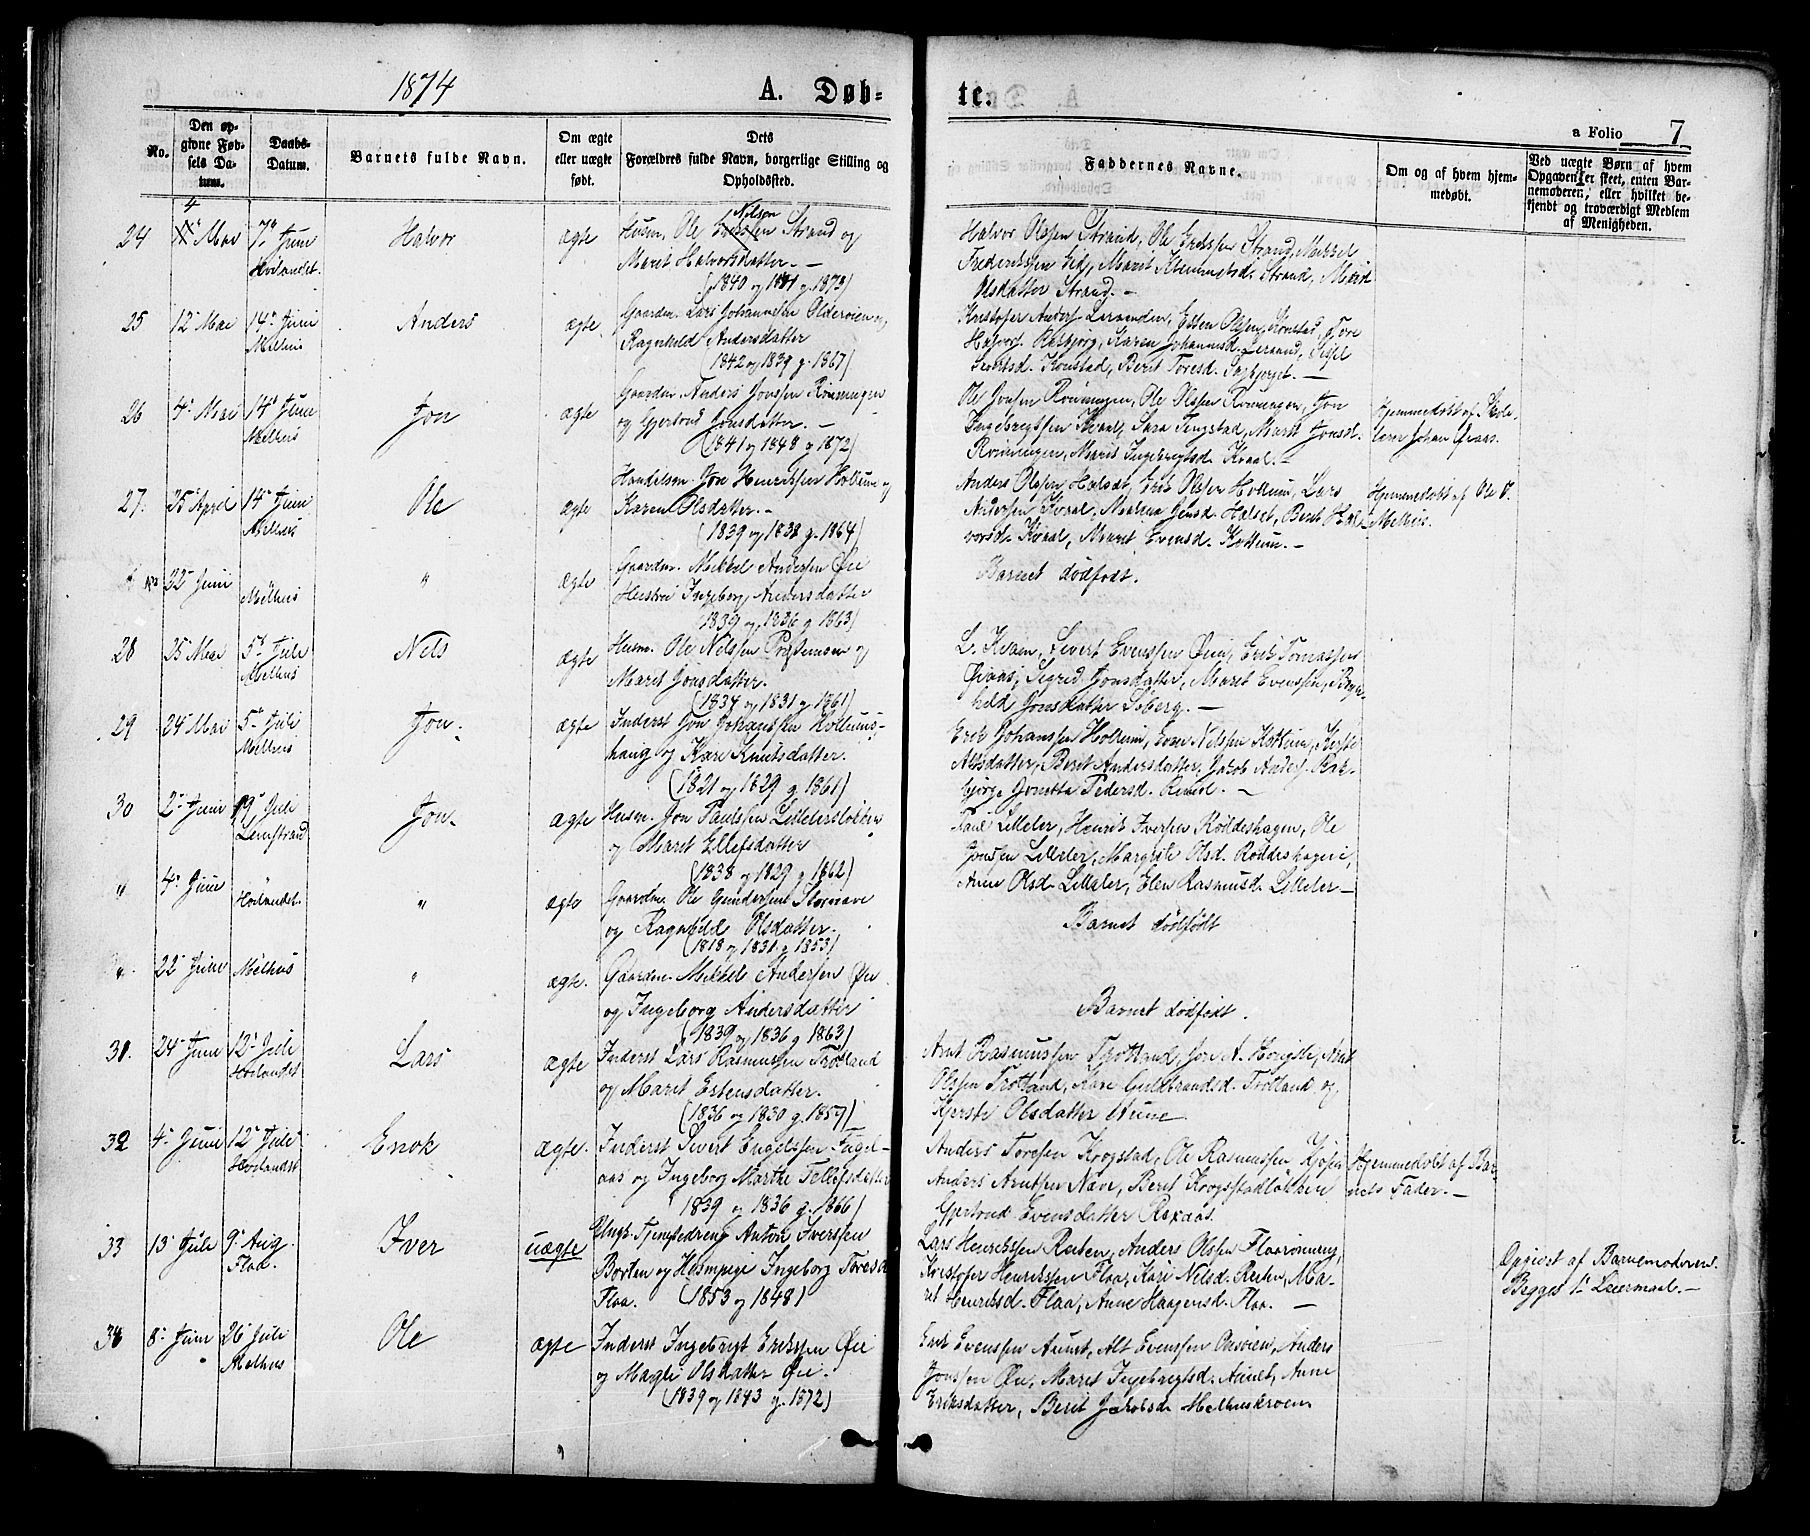 1874
A. Døb-
te.
a Folio 7
No.
Den opgivne Fødsels Datum.
Daabs-Datum.
Barnets fulde Navn.
Om ægte eller uægte født.
Dets Forældres fulde Navn, borgerlige Stilling og Opholdssted.
Faddernes Navne.
Om og af hvem hjemmedøbt.
Ved uægte Børn af hvem Opgaven er skeet, enten Barnemoderen, eller hvilket bekjendt og troværdigt Medlem af Menigheden.
24 4 Mai 7de Juni Halvor ægte Husm. Ole Nilsen Strand og
Hovlandet. Maret Halvorsdatter. —
(1840 og 1841 g. 1873)
Halvor Olssen Strand, Ole Erikssen Strand, Mikkel
Frederikssen Eid, Marit Klemmetsd. Strand, Marit
Olsdatter Strand. —
25 12 Mai 14de Juni Anders ægte. Gaardm. Lars Johannessen Olderøien og
Melhus Ragnhild Andersdatter
(1842 og 1839 g. 1867)
Kristofer Anders. Leraanden, Esten Olsen Kroistad, Tore
Halvors. Rasbjørg, Karen Johannesd. Leraand, Sissel
Sivertsd. Konstad, Berit Toresd. —
26 4 Mai 14de Juni Jon ægte Gaardm. Anders Jonssen Rønningen
Melhus og Gjertrud Jonsdatter. —
(1841 og 1848 g 1872)
Ole Jonsen Rønningen, Ole Olssen Rønningen, Jon
Ingebregtssen Kvaal, Sara Tingstad, Marit Jonsd.
Rønningen, Marit Ingebregtsd. Kvaal. —
Hjemmedøbt af Skolelærer Johan Øvaas.
27. 25 April 14de Juni Ole ægte Handelsm. Jon Henrikssen Kollum og
Melhus Karen Olsdatter. —
(1839 og 1838 g. 1864)
Anders Olssen Halset, Erik Olssen Hollum, Lars
Andersen Kvaal, Malena Jensd. Halset, Berit Halvorsd. Kvaal, Maret Evensd. Kollum. —
Hjemmedøbt af Ole
Melhus.
22 Juni Melhus " ægte Gaardm. Mikkel Andersen Øie
Hustru Ingeborg Andersdatter
1839 og 1836 g 1863)
Barnet dødfødt.
28 25 Mai 5te Juli Nels ægte Husm. Ole Nelssen Præstemoen og
Melhus Marit Jonsdatter.
(1834 og 1831 g 1861)
L. Kvam, Sivert Evenssen Øien, Erik Tomassen
Øvaas, Sigrid Jonsdatter, Maret Evenssen, Ragnhild Jonsdatter Søberg. —
29 24 Mai 5te Juli Jon. ægte Inderst Jon Johanssen Kollums-
Melhus haug og Kari Knutsdatter.
(1821 og 1829 g. 1861)
Erik Johanssen Hollum, Even Nelssen Kollum, Kjersti
Altsdatter, Berit Andersdatter, Jakob Anders.
Jonetta Pedersd. —
30 2 Juni 19 Juli Jon. ægte Husm. Jon Paulssen Lillelersløkken
Leinstrand og Maret Ellefsdatter
(1838 og 1829 g 1862)
Paul Lilleler, Henrik Iversen Røddeshagen, Ole
Jonsen Lilleler, Margrete Olsd. Røddeshagen,
Anne Olsd. Lilleler, Elen Rasmusd. Lilleler —
" 4 Juni Hovlandet. " ægte Gaardm. Ole Gundersen Stornave
og Ragnhild Olsdatter.
(1818 og 1831 g. 1853)
Barnet dødfødt
" 22 Juni Melhus " ægte. Gaardm. Mikkel Andersen Øie
og Ingeborg Andersdatter
(1839 og 1836 g 1863)
Barnet dødfødt.
31. 24 Juni 12 Juli Lars ægte Inderst Lars Rasmussen Trøtland
Hovlandet og Maret Estensdatter.
(1836 og 1830 g. 1857)
Arnt Rasmussen Trøtland, Jon A. Kregsti, Arnt
Olssen Trøtland, Kare Guldbrandsd. Trøtland og
Kjersti Olsdatter Hune
32 4 Juni 12 Juli Enok ægte. Inderst Sivert Engelssen Fugel-
Hovlandet aas og Ingeborg Marthe Tellefsdatter
(1839 og 1836 g. 1866)
Anders Toresen Krogstad, Ole Rasmussen Kjøsen
Anders Arntsen Nave, Berit Krogstadløkken
Gjertrud Evensdatter Roxaas.
Hjemmedøbt af Barnets Fader. —
33 13 Juli 9 Aug. Iver uægte Ungk. Tjenestedreng Anton Iverssen
Flaa. Borten og Husmpige Ingeborg Toresd
Flaa. (1853 og 1848)
Lars Henrikssen Reiten, Anders Olssen Flaarønning,
Kristofer Henrikssen Flaa, Kari Nilsd. Reiten, Maret Henriksd. Flaa, Anne Haagensd. Flaa. —
Opgivet af Barnemoderen.
Begges 1ste Leiermaal. —
34 8 Juni 26 Juli Ole ægte Inderst Ingebrigt Erikssen Øie
Melhus og Magli Olsdatter Øie.
(1839 og 1843 g. 1872)
Erik Evenssen Aunet, Alt Evenssen, Anders
Jonssen Øie, Maret Ingebregtsd. Aunet, Anne
Eriksdatter, Berit Jakobsd. Melhuskroen